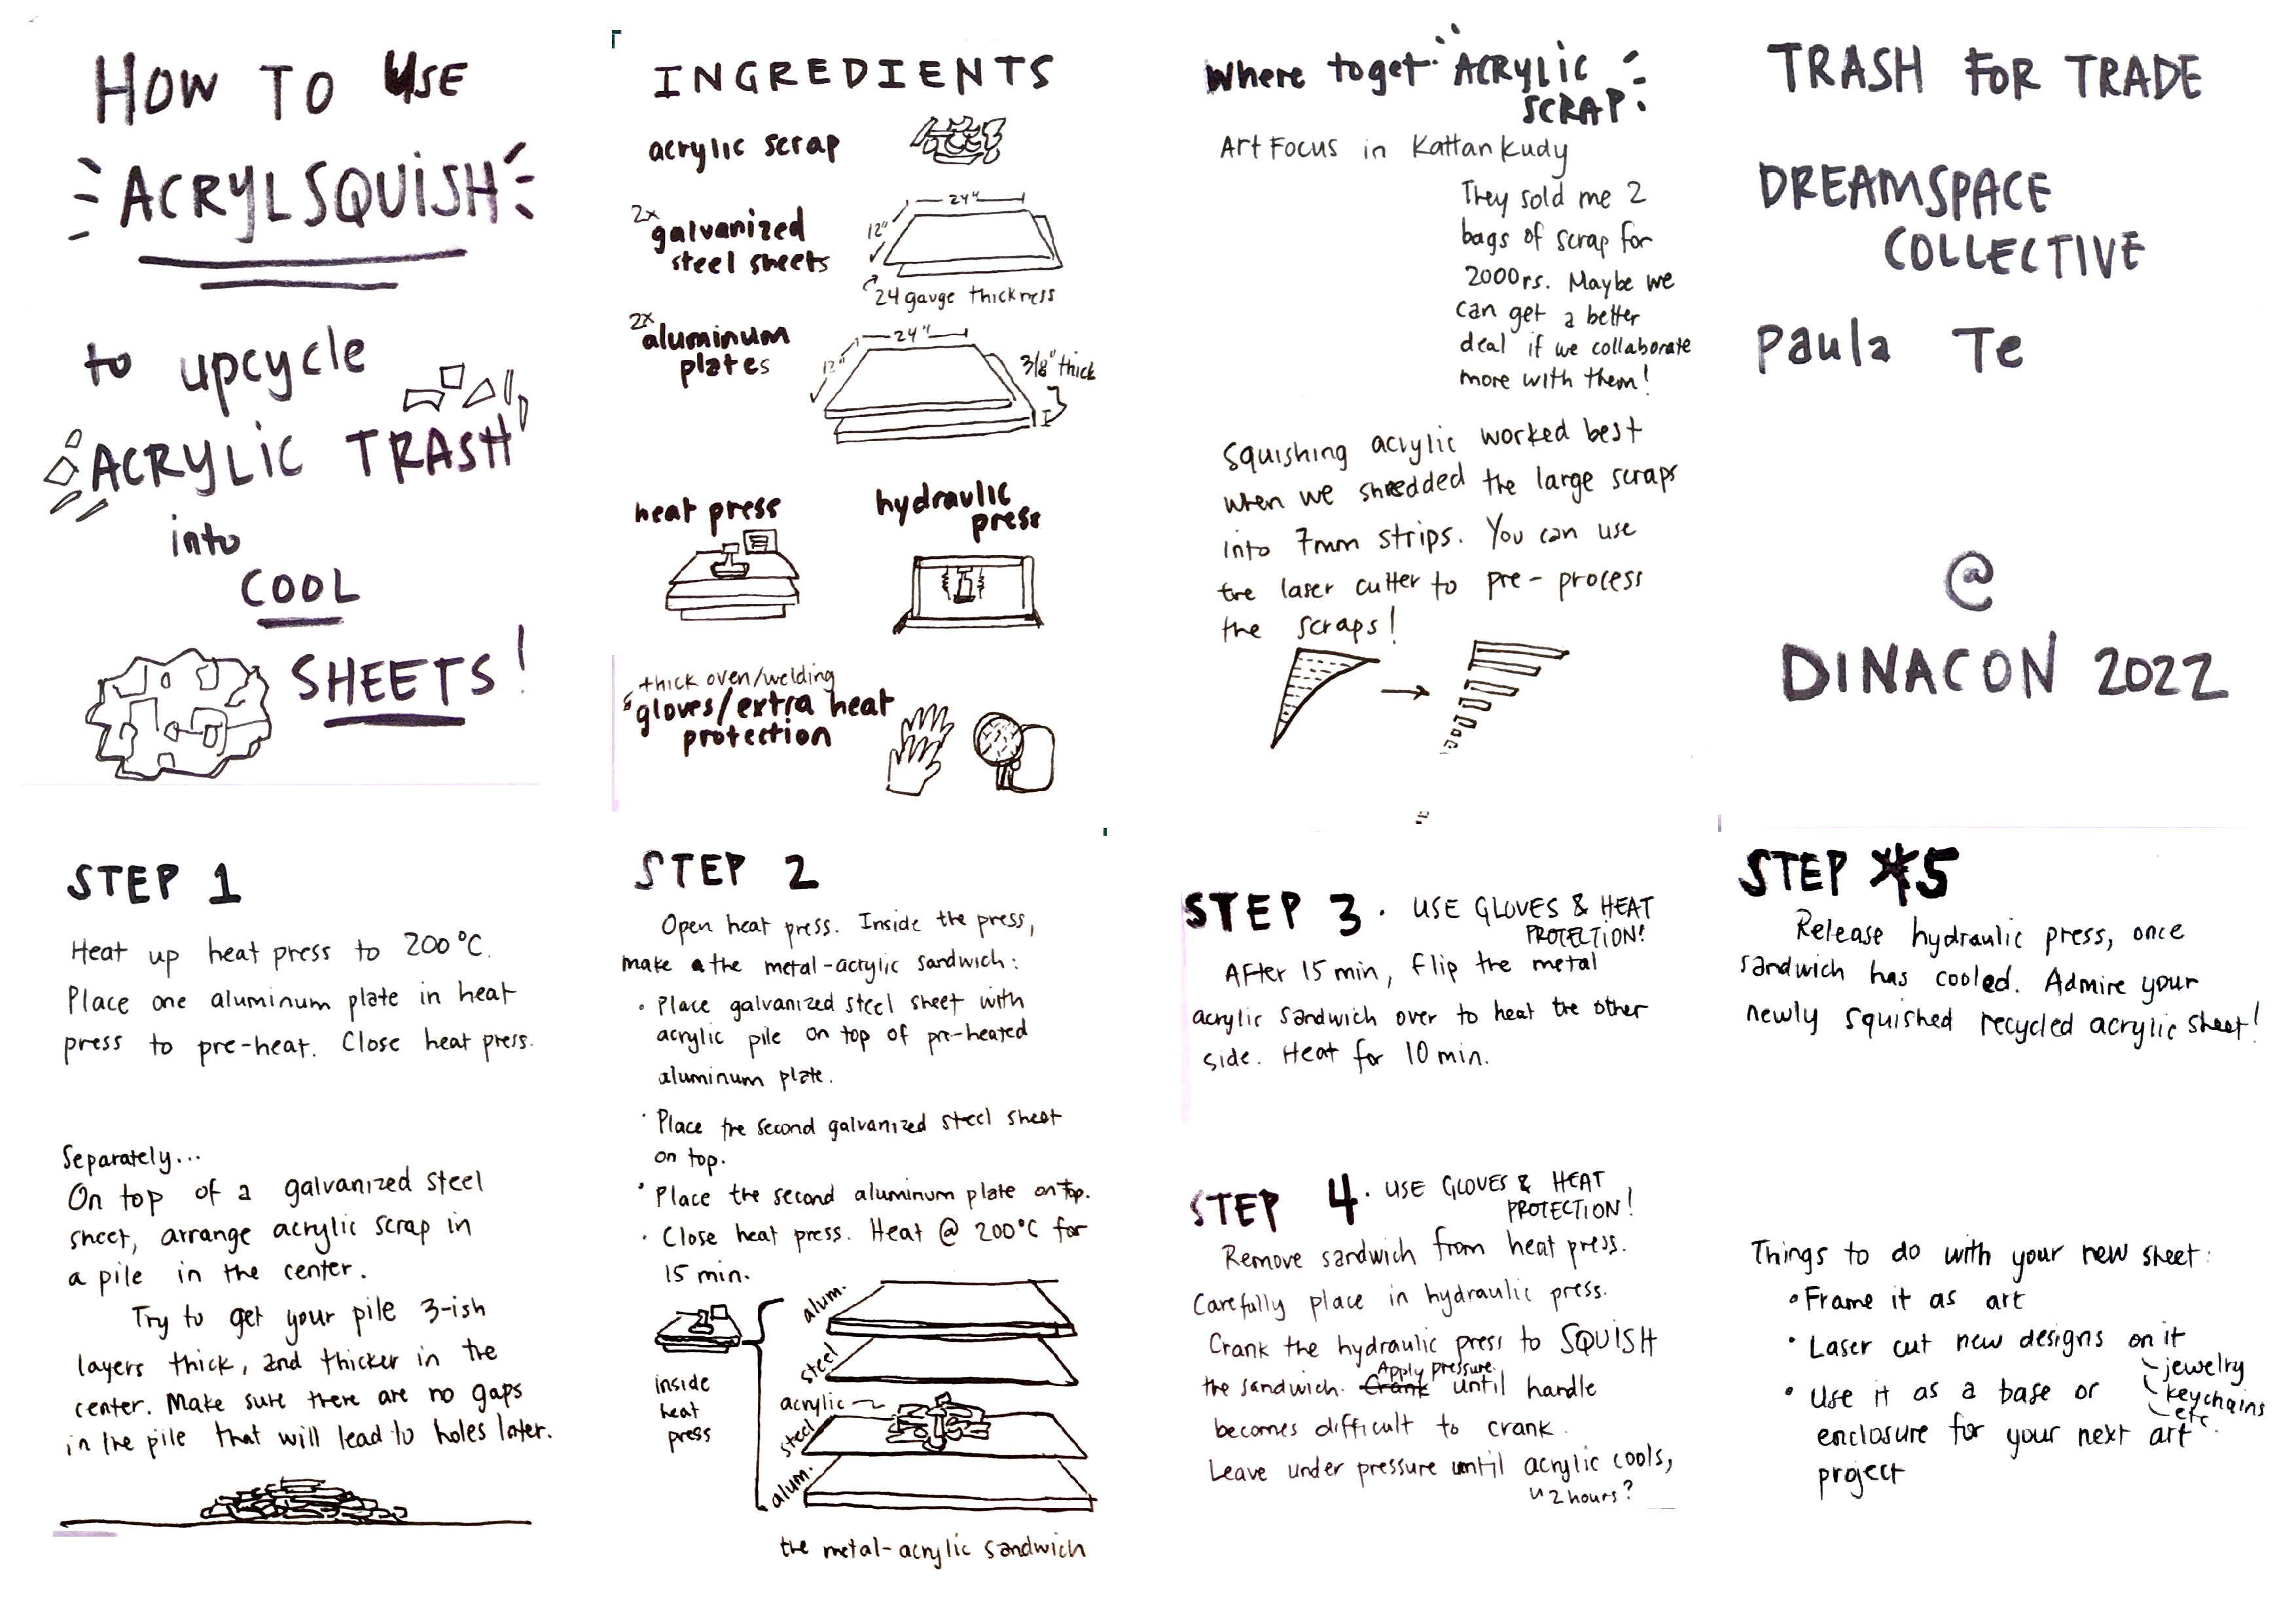 HOW TO USE
ACRYLSQUISH
to upcycle
ACRYLIC TRASH
into
COOL
SHEETS!
INGREDIENTS
acrylic scrap
2x
galvanized
steel sheets
24"
12"
24 gauge thickness
2x
aluminum
plates
24"
12"
3/8" thick
heat press
hydraulic
press
thick oven/welding
gloves/extra heat
protection
Where to get ACRYLIC
SCRAP:
Art Focus in Kattankudy
They sold me 2
bags of scrap for
2000rs. Maybe we
can get a better
deal if we collaborate
more with them!
Squishing acrylic worked best
when we shredded the large scraps
into 7mm strips. You can use
the laser cutter to pre-process
the scraps!
TRASH FOR TRADE
DREAMSPACE
COLLECTIVE
Paula Te
@
DINACON 2022
STEP 1
Heat up heat press to 200°C.
Place one aluminum plate in heat
press to pre-heat. Close heat press.
Separately...
On top of a galvanized steel
sheet, arrange acrylic scrap in
a pile in the center.
Try to get your pile 3-ish
layers thick, and thicker in the
center. Make sure there are no gaps
in the pile that will lead to holes later.
STEP 2
Open heat press. Inside the press,
make the metal-acrylic sandwich:
• Place galvanized steel sheet with
acrylic pile on top of pre-heated
aluminum plate.
• Place the second galvanized steel sheet
on top.
• Place the second aluminum plate on top.
• Close heat press. Heat @ 200°C for
15 min.
inside
heat
press
alum.
steel
acrylic
steel
alum.
the metal-acrylic sandwich
STEP 3. USE GLOVES & HEAT
PROTECTION!
After 15 min, flip the metal
acrylic sandwich over to heat the other
side. Heat for 10 min.
STEP 4. USE GLOVES & HEAT
PROTECTION!
Remove sandwich from heat press.
Carefully place in hydraulic press.
Crank the hydraulic press to SQUISH
the sandwich. Crank Apply pressure until handle
becomes difficult to crank.
Leave under pressure until acrylic cools,
~2 hours?
STEP 5
Release hydraulic press, once
sandwich has cooled. Admire your
newly squished recycled acrylic sheet!
Things to do with your new sheet:
• Frame it as art
• Laser cut new designs on it
- jewelry
- keychains
- etc.
• Use it as a base or
enclosure for your next art
project